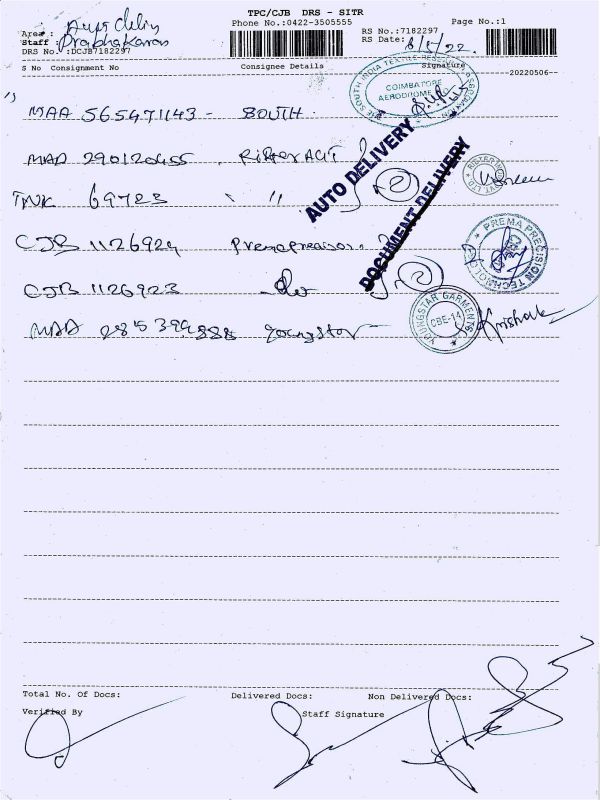 TPC/CJB DRS - SITR
Phone No.:0422-3505555
Page No.:1
Area :
Staff : Prabhakaran
DRS No. :DCJB7182297
RS No.:7182297
RS Date: 6/5/22.
S No Consignment No Consignee Details Signature
20220506-
THE SOUTH INDIA TEXTILE RESEARCH ASSOCIATION
COIMBATORE AERODROME
MAA 565471143 - SOUTH
MAA 290120455
AUTO DELIVERY
DOCUMENT DELIVERY
TNK 69723 " "
CJB 1126924
PREMA PRECISION TECHNOLOGY
CJB 1126923 - do
MAA 285399888 youngstar
YOUNGSTAR GARMENTS
CBE-14
Total No. Of Docs: Delivered Docs: Non Delivered Docs:
Verified By Staff Signature